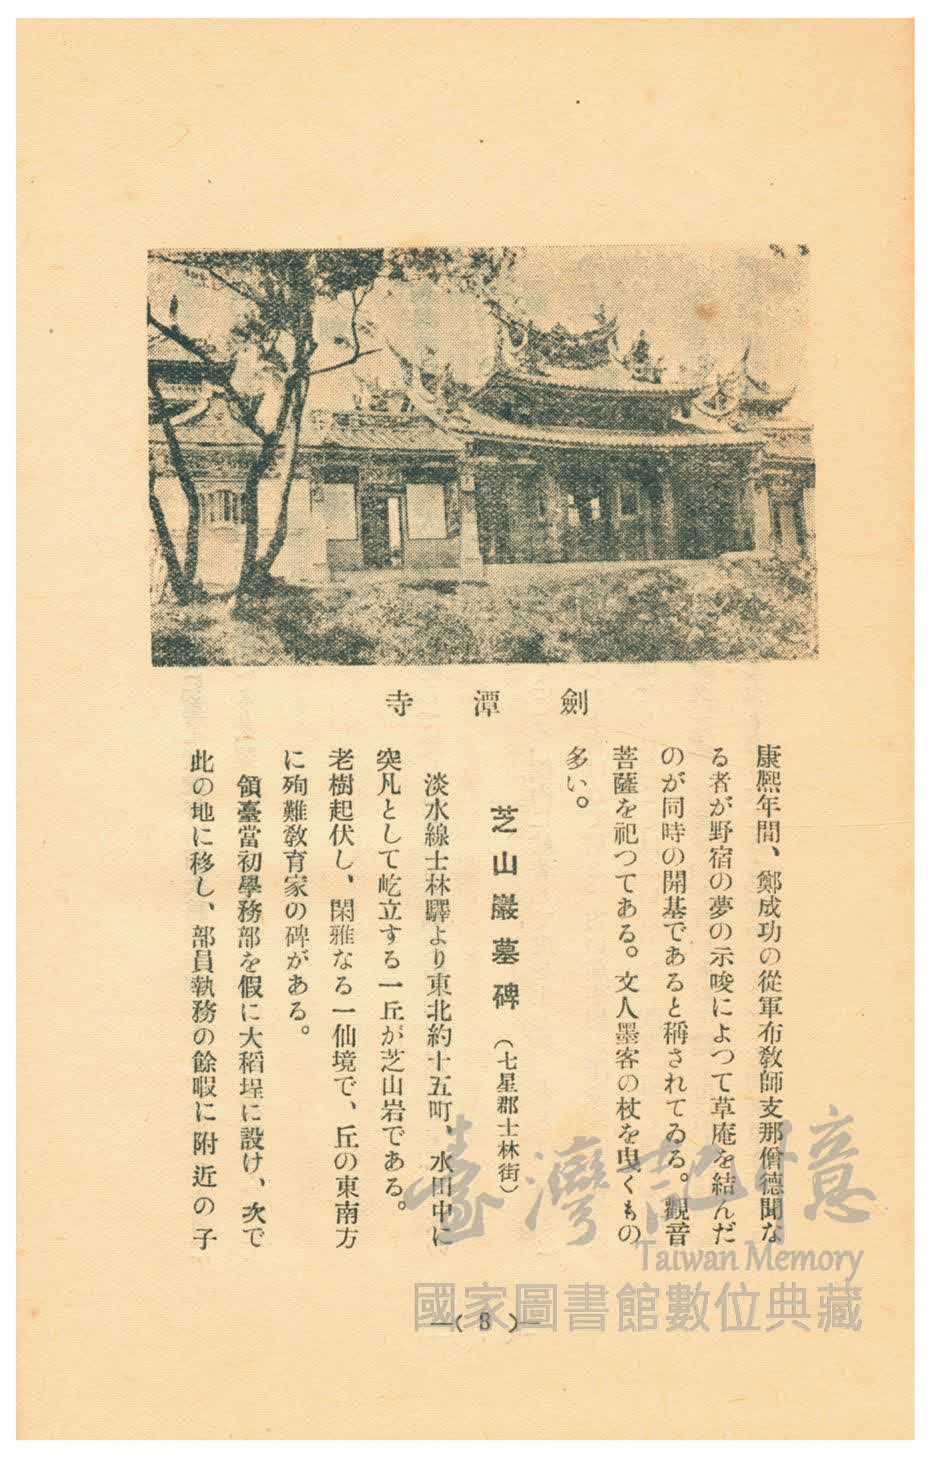 劍潭寺
康熙年間、鄭成功の從軍布敎師支那僧德聞な
る者が野宿の夢の示唆によつて草庵を結んだ
のが同時の開基であると稱されてゐる。觀音
菩薩を祀つてある。文人墨客の杖を曳くもの
多い。
芝山巖墓碑（七星郡士林街）
淡水線士林驛より東北約十五町、水田中に
突凡として屹立する一丘が芝山岩である。
老樹起伏し、閑雅なる一仙境で、丘の東南方
に殉難敎育家の碑がある。
領臺當初學務部を假に大稻埕に設け、次で
此の地に移し、部員執務の餘暇に附近の子
—( 8 )—
臺灣記憶
Taiwan Memory
國家圖書館數位典藏